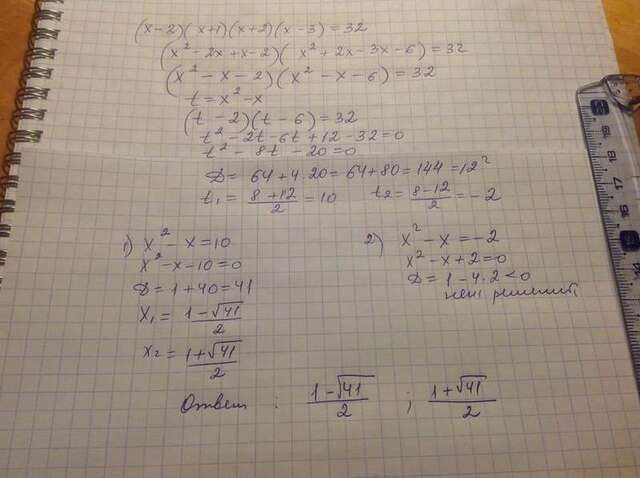 (x-2)(x+1)(x+2)(x-3)=32
(x²-2x+x-2)(x²+2x-3x-6)=32
(x²-x-2)(x²-x-6)=32
t=x²-x
(t-2)(t-6)=32
t²-2t-6t+12-32=0
t²-8t-20=0
D=64+4·20=64+80=144=12²
t₁=\frac{8+12}{2}=10 t₂=\frac{8-12}{2}=-2
1) x²-x=10
x²-x-10=0
D=1+40=41
x₁=\frac{1-√41}{2}
x₂=\frac{1+√41}{2}
2) x²-x=-2
x²-x+2=0
D=1-4·2<0
нет решений
Ответ: \frac{1-√41}{2} ; \frac{1+√41}{2}